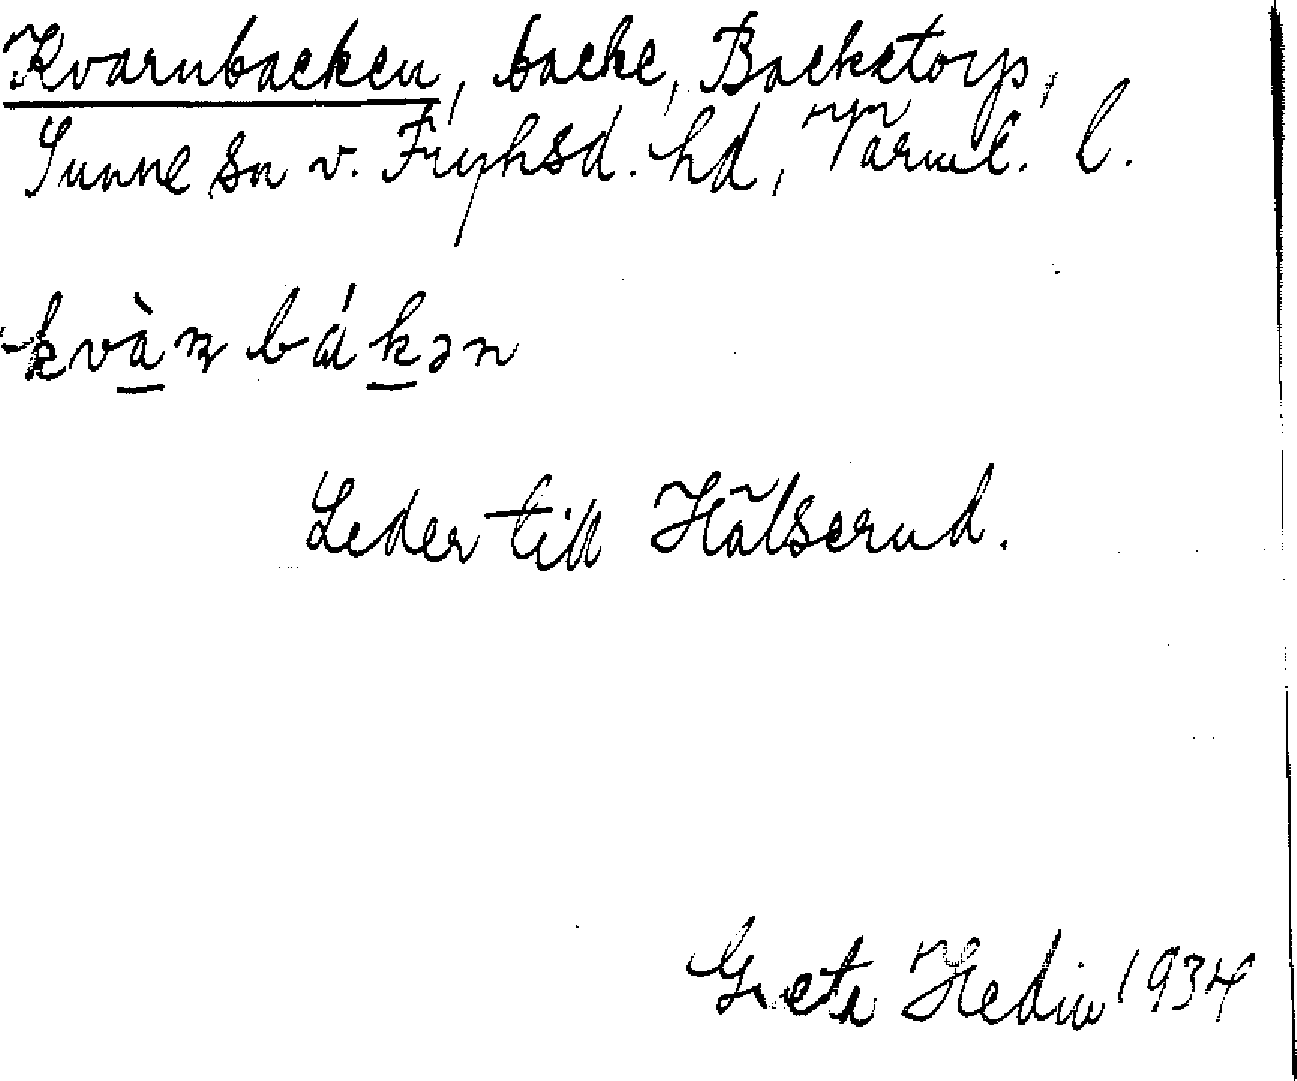 Kvarnbacken, backe, Backstorp,
Sunne sn v. Fryksd. hd, Värml. l.
kvà̱ɳbáḵən
Leder till Hälserud.
Greta Hedin 1934